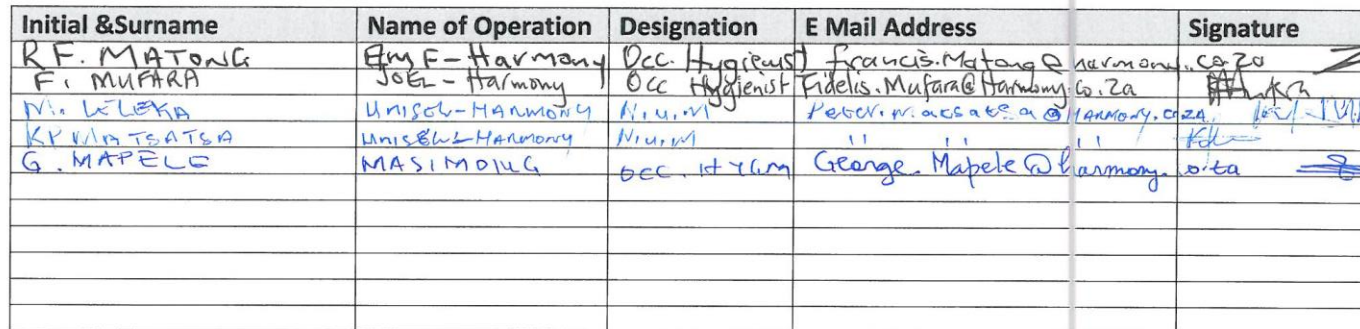 Initial &Surname Name of Operation Designation E Mail Address Signature
R F. MATONG Harmony Occ. Hygienist francis.Matong@harmony.co.za
F. MUFARA JOEL - Harmony Occ Hygienist Fidelis.Mufara@Harmony.co.za
LELEKA UNISEL-HARMONY N.U.M @HARMONY.co.ZA
UNISELL-HARMONY N.U.M " " "
G. MAPELE MASIMONG OCC. HYGN George.Mapele@harmony.